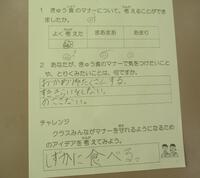 1 きゅう食のマナーについて、考えることができ
ましたか。
よく考えた まあまあ あまり
2 あなたが、きゅう食のマナーで気をつけたいこと
や、とりくみたいことは、何ですか。
おかわりをたくさんする。
すききらいをしない。
のこさない。
チャレンジ
クラスみんながマナーを守れるようになるための
アイデアを考えてみよう。
しずかに食べる。